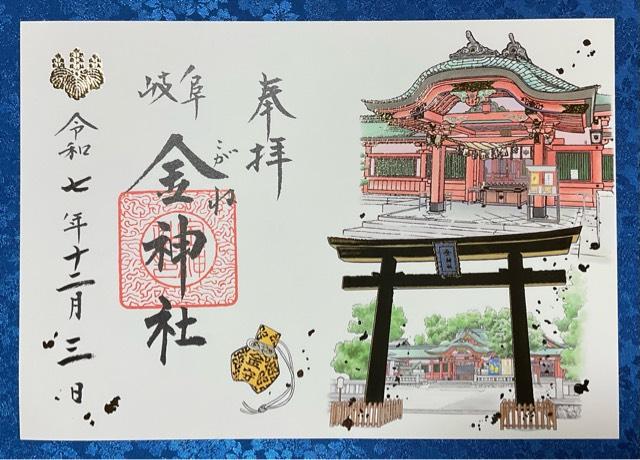 奉拝
岐阜
金神社
こがね
令和七年十二月三日